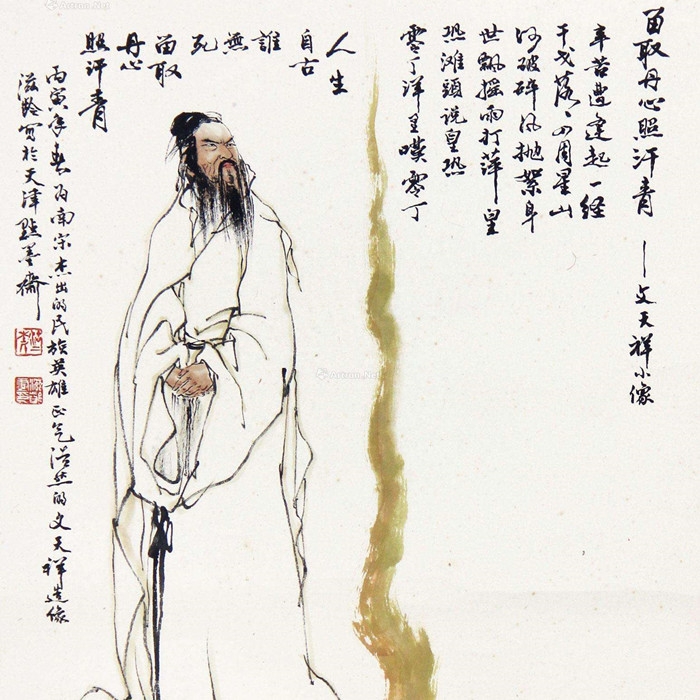 留取丹心照汗青——文天祥小像
辛苦遭逢起一经
干戈落〻四周星山
河破碎风抛絮身
世飘摇雨打萍皇
恐滩頭说皇恐
零丁洋里嘆零丁
人生
自古
誰
無
死
留取
丹心
照汗青
丙寅年春为南宋杰出的民族英雄正气浩然的文天祥造像
滋龄写於天津點墨齋
Artron.Net
Artron.Net